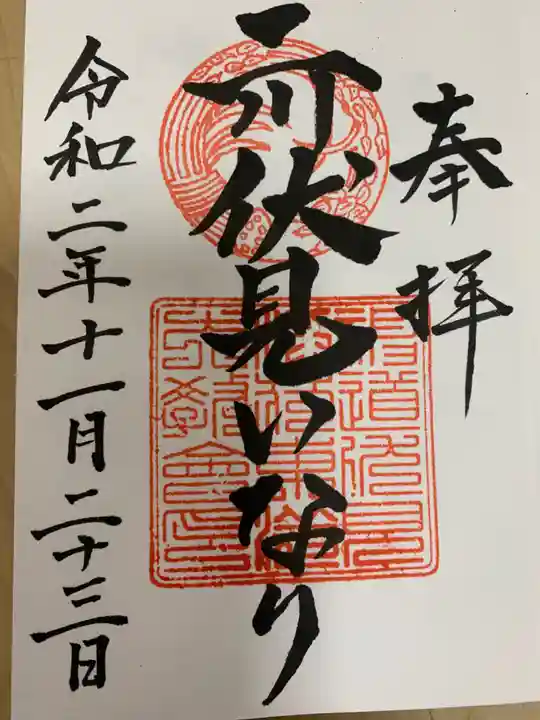 奉拝
二川伏見いなり
令和二年十一月二十三日